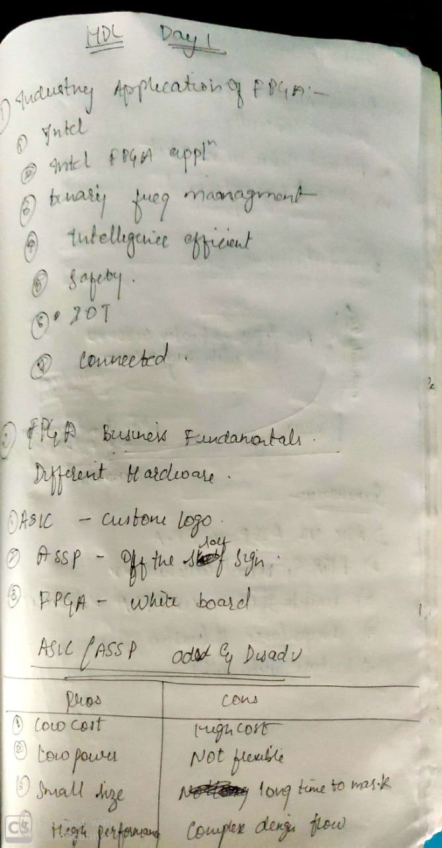 MDL Day 1
① Industry Application of FPGA:-
① Intel
② Intel FPGA appln
③ binary freq managment
④ Intelligence efficient
⑤ Safety.
⑥ • IOT
⑦ Connected.
② FPGA Business Fundamentals.
Different Hardware.
① ASIC - custome logo.
② ASSP - Off the self sign.
③ FPGA - White board
ASIC / ASSP adv & Disadv
Pros cons
① Low cost High cost
② Low power Not flexible
③ Small size long time to mask
High performan Complex design flow
CS